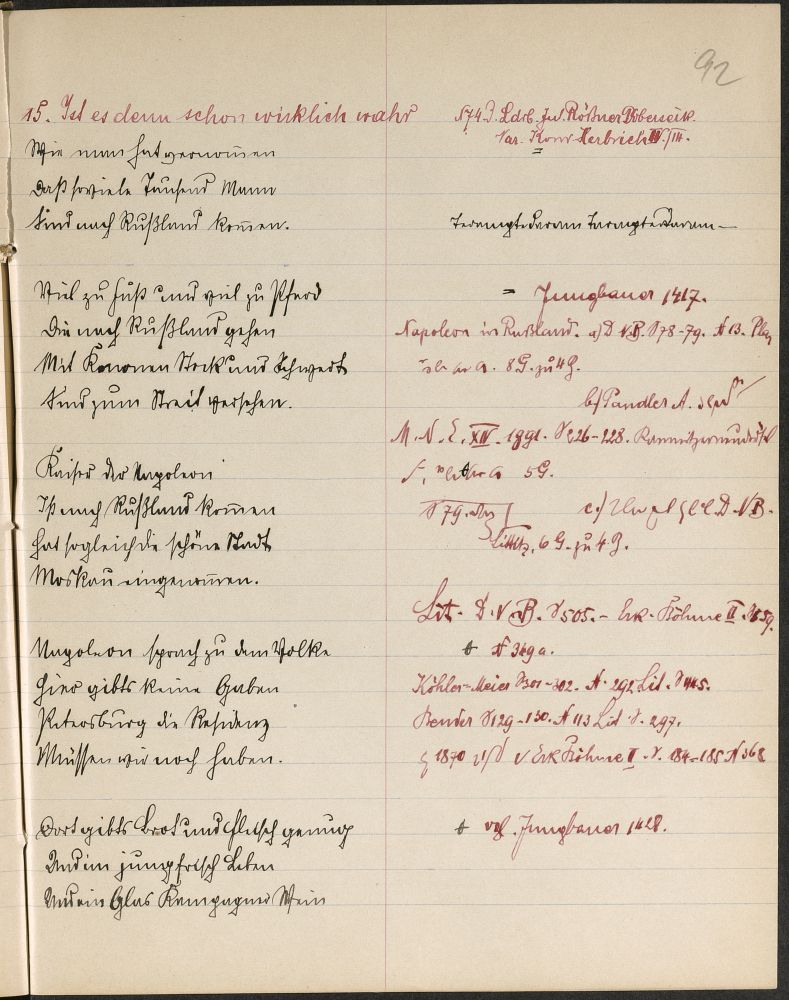 92
15. Ist es denn schon wirklich wahr
Wie man hat vernom̄en
Daß soviele Tausend Mann
Sind nach Rußland kom̄en.
Viel zu Fuß und viel zu Pferd
Die nach Rußland gehen
Mit Kanonen Stock und Schwert
Sind zum Streit versehen.
Kaiser der Napoleon
Iß nach Rußland kom̄en
Hat sogleich die schöne Stadt
Moskau eingenom̄en.
Napoleon sprach zu dem Volke
Hier gibts keine Gaben
Petersburg die Residenz
Müssen wir noch haben.
Dort gibts Brot und Fleisch genug
Und ein jung frisch Leben
Und ein Glas Kampagner Wein
Var. Konr. Herbrich
= Jungbauer 1417.
Napoleon in Rußland. a) D.V.B. S 78-79. N 13.
8 G. zu 4 Z.
b) Pandler A.
M. N. E. XIV. 1891. S 226-228.
5 G.
S 79. c.) D.V.B.
6 G. zu 4 Z.
Lit. D.V.B. S 505. - Erk-Böhme II.
N 349 a.
Köhler-Meier S 301-302. N. 292 Lit. S 445.
Bender S 129-130. N 113 Lit S. 297.
1870 Erk Böhme II. S. 184-185 N 368
vgl. Jungbauer 1428.